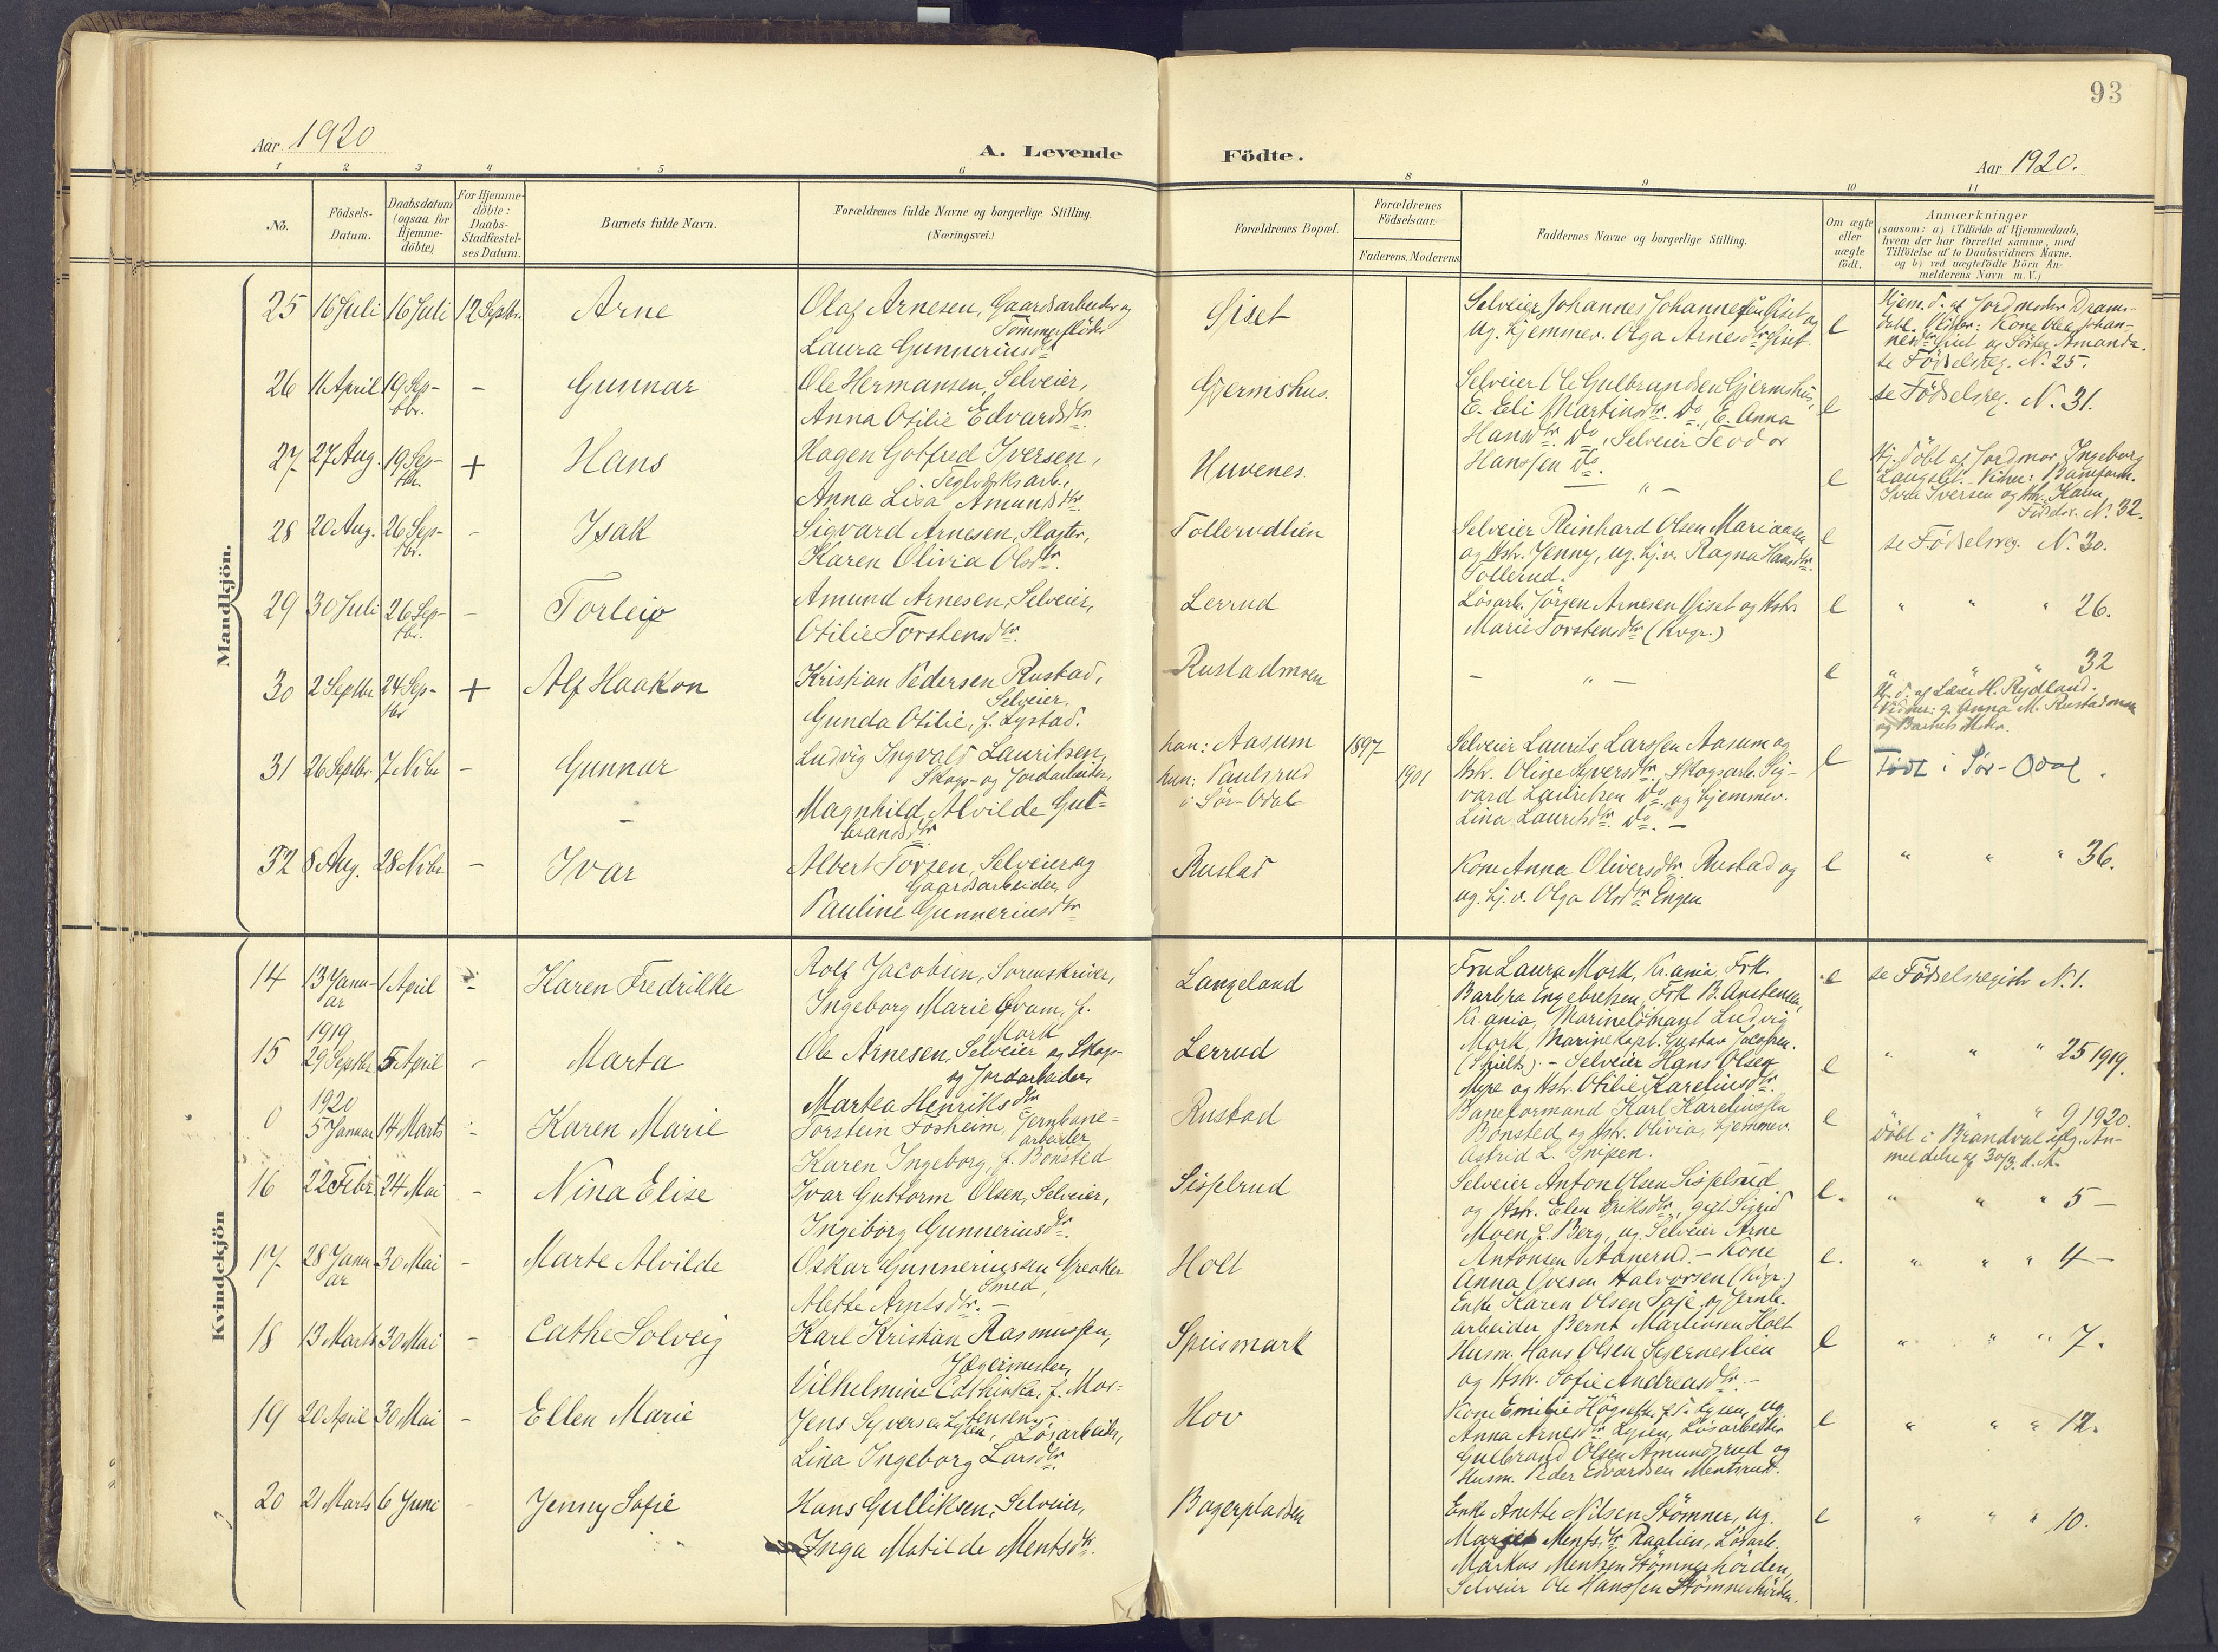 93
Aar 1920
A. Levende Födte.
Aar 1920.
1 2 3 4 5 6 8 9 10 11
No.
Födsels-Datum.
Daabsdatum (ogsaa for Hjemme-döbte)
For Hjemme-döbte: Daabs-Stadfæstel-ses Datum.
Barnets fulde Navn.
Forældrenes fulde Navne og borgerlige Stilling. (Næringsvei.)
Forældrenes Bopæl.
Forældrenes Födselsaar.
Faderens. Moderens
Faddernes Navne og borgerlige Stilling.
Om ægte eller uægte födt.
Anmærkninger
(saasom: a) i Tilfælde af Hjemmedaab,
hvem der har forrettet samme, med
Tilföielse af to Daabsvidners Navne.
og b) ved uægtefödte Börn An-
melderens Navn m. V.)
Mandkjön.
25 16 Juli 16 Juli 12 Septbr. Arne
Olaf Arnesen, Gaardsarbeider og
Tömmerflöder
Laura Gunneriusdtr
Siset
Selveier Johannes Johannesen Siset og
ug. hjemmev. Olga Arnesdtr Siset.
e
Hjem.d. af Jordmoder Dram-
Kone Olea Johan-
nesdtr Siset og Söster Amanda.
se Födselsreg. N. 25.
26 11 April 19 Sep-
tbr. - Gunnar
Ole Hermansen, Selveier,
Anna Otilie Edvardsdtr.
Gjermshus.
Selveier Ole Gulbrandsen Gjermshus,
E. Eli Martinsdtr. Do, E. Anna
Hansdtr. Do, Selveier Tevdor
Hanssen Do.
e
se Födselsreg. N. 31.
27 27 Aug. 19 Sep-
tbr. + Hans
Hagen Gotfred Iversen,
Teglverksarb.,
Anna Lisa Amundsdtr
Huvenes.
- " -
e
Hj. döbt af Jordmor Ingeborg
Langslet. Vidner: Baneform.
Iver Iversen og Hstr. Karen
Födslr. N. 32.
28 20 Aug. 26 Sep-
tbr. - Isak
Sigvard Arnesen, Slagter,
Karen Olivia Olsdtr.
Tollerudlien
Selveier Reinhard Olsen Mariaasen
og Hstr. Jenny, ug. hj.v. Ragna Hansdtr.
Tollerud.
e
se Födselsreg. N. 30.
29 30 Juli 26 Sep-
tbr. - Torleif
Amund Arnesen, Selveier,
Otilie Torstensdtr.
Lerrud
Lösarb. Jörgen Arnesen Siset og Hstr
Marie Torstensdtr (Kvgr.)
e
" " " 26.
30 2 Septbr 24 Sep-
tbr + Alf Haakon
Kristian Pedersen Rustad,
Selveier,
Gunda Otilie, f. Lystad.
Rustadmoen
- " -
e
" " " 32
H. d. af Læge H. Rydland.
Vidner: g. Anna M. Rustadmoen
og Barnets Moder.
31 26 Septbr. 7 Nvbr - Gunnar
Ludvig Ingvald Lauritsen,
Skogs- og Jordarbeider,
Magnhild Alvilde Gul-
brandsdtr
han: Aasum
hun: Paulsrud
i Sör-Odal
1897
1901
Selveier Laurits Larssen Aasum og
Hstr. Oline Syversdtr., Skogsarb. Sig-
vard Lauritsen Do, og hjemmev.
Lina Lauritsdtr. Do. -
e
Födt i Sör-Odal.
32 8 Aug. 28 Nvbr - Ivar
Albert Torsen, Selveier og
Gaardsarbeider,
Pauline Gunneriusdtr
Rustad
Kone Anna Oliversdtr. Rustad og
ug. hj. v. Olga Olsdtr Engen
e
" " " 36.
Kvindekjön
14 13 Janu-
ar 1 April - Karen Fredrikke
Rolf Jacobsen, Sorenskriver,
Ingeborg Marie Qvam, f.
Mork
Langeland
Fru Laura Mork, Kr.ania, Frk.
Barbra Engebretsen, Frk B. Anstensen,
Kr.ania, Marinelöitnant Ludvig
Mork, Marinekapt. Gustav Jacobsen.
e
se Födselsregistr N. 1.
15 1919
29 Septbr 5 April - Marta
Ole Arnesen, Selveier og Skogs-
og Jordarbeider,
Martea Henriksdtr
Lerrud
- Selveier Hans Olsen
Myre og Hstr. Otilie Kareliusdtr.
e
" " " 25 1919.
0 1920
5 Januar 14 Marts - Karen Marie
Torstein Fosheim, Jernbane-
arbeider
Karen Ingeborg, f. Bonsted
Rustad
Baneformand Karl Kareliussen
Bonsted og Hstr. Olivia, hjemmev.
Astrid L. Snipen.
e
" 9 1920.
Döbt i Brandval iflg. An-
meldelse af 30/3. d. A.
16 22 Febr 24 Mai - Nina Elise
Ivar Guttorm Olsen, Selveier,
Ingeborg Gunneriusdtr.
Sisselrud
Selveier Anton Olsen Sisselrud
og Hstr. Elen Eriksdtr, gift Sigrid
Moen, f. Berg, ug. Selveier Arne
Antonsen Aanerud. - Kone
e.
" " " 5 -
17 28 Janu-
ar 30 Mai - Marte Alvilde
Oskar Gunneriussen Greaker
Smed,
Alette Arntsdtr. -
Holt
Anna Ovesen Halvorsen (Kvgr.)
Enke Karen Olsen Taje, og Jernb.
arbeider Bernt Martinsen Holt
e.
" " " 4 -
18 13 Marts 30 Mai - Cathe Solveig
Karl Kristian Rasmussen,
Jægermester,
Vilhelmine Cathinka, f. Mor-
tensen.
Speismark
Husm. Hans Olsen Stjerneslien
og Hstr. Sofie Andreasdtr. -
e
" " " 7.
19 20 April 30 Mai - Ellen Marie
Jens Syversen Lysen, Lösarbeider,
Lina Ingeborg Larsdtr.
Hov
Kone Emilie f. Lysen, ug.
Anna Arnesdtr Lysen, Lösarbeider
Gulbrand Olsen Amundsrud og
Husm. Peder Edvardsen Mentsrud.
e
" " " 12.
20 21 Marts 6 Juni - Jenny Sofie
Hans Gulliksen, Selveier,
Inga Matilde Mentsdtr.
Bagerpladsen
Enke Anette Nilsen Stömner, ug.
Margit Mentsdtr Raalien, Lösarb.
Markus Mentsen Stömnerhöiden,
Selveier Ole Hanssen Stömnerhöiden.
e
" " " 10.